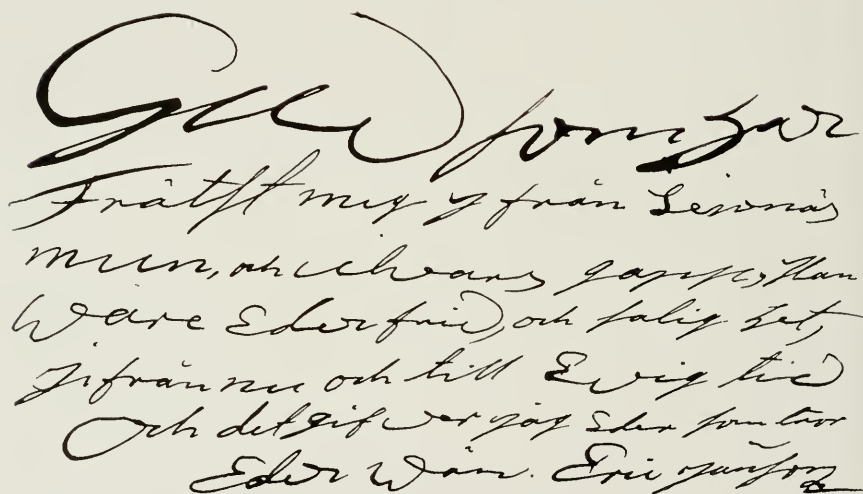 Gud som har
Frälst mig y från Leionäs
mun, och Ulvars gapp, Han
Wäre Eder frid, och salig het,
jifrån nu och till Ewig tid
Och det gifwer jag Eder som tror
Eder Wän. Eric Jansson